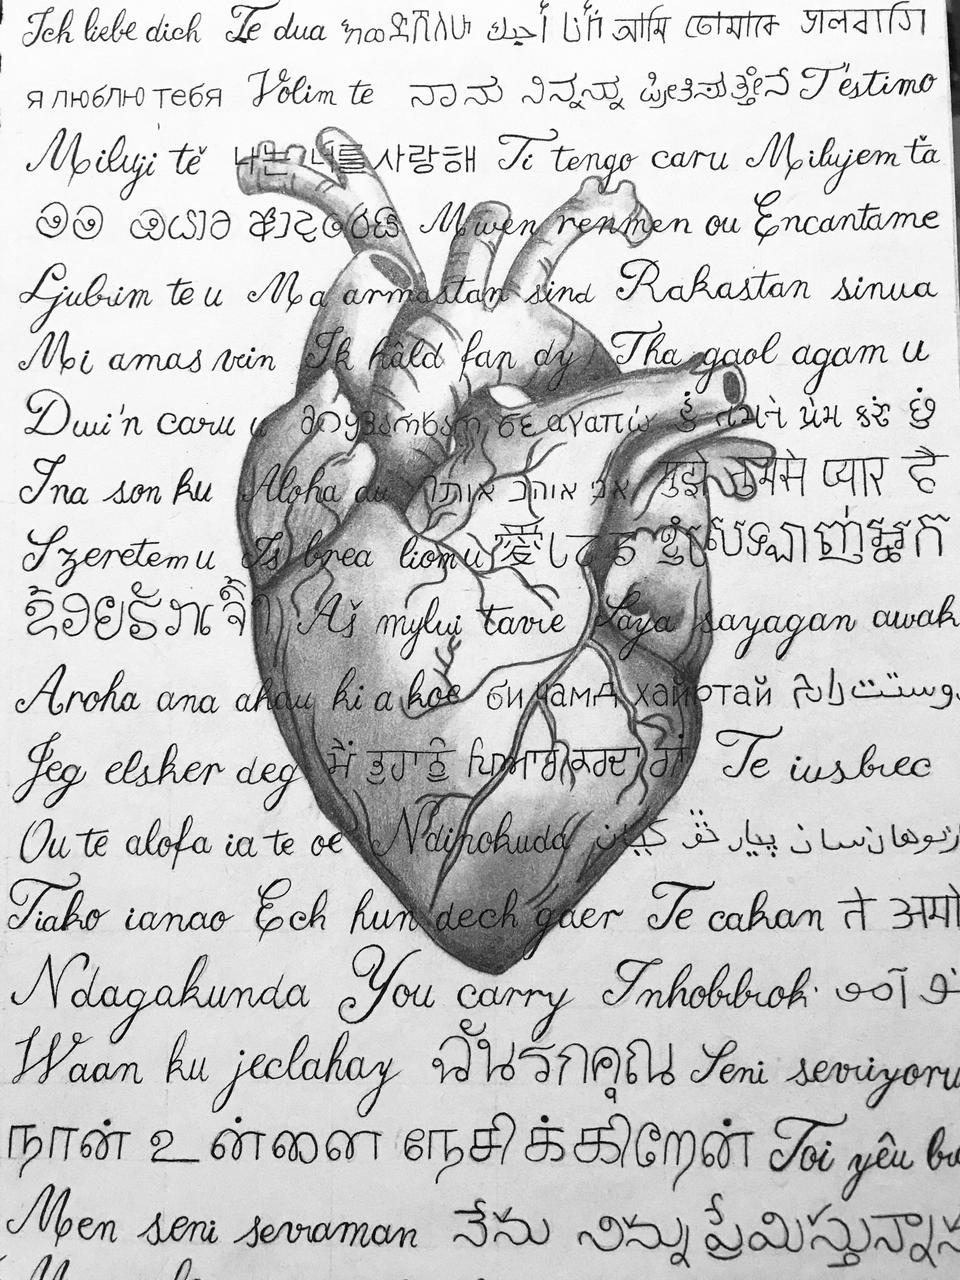 Ich liebe dich Te dua أنا أحبك আমি তোমাকে
я люблю тебя Volim te ನಾನು ನಿನ್ನನ್ನು ಪ್ರೀತಿಸುತ್ತೇನೆ T'estimo
Miluji tě 나는 너를 사랑해 Ti tengo caru Milujem ťa
මම ඔයාට ආදරෙයි Mwen renmen ou Encantame
Ljubim te u Ma armastan sind Rakastan sinua
Mi amas vin Ik hâld fan dy Tha gaol agam u
Dwi'n caru u მიყვარხარ σε αγαπώ હું તમને પ્રેમ કરું છું
Ina son ku Aloha au אני אוהב אותך मुझे तुमसे प्यार है
Szeretem u Is brea liom u 愛してる ខ្ញុំស្រឡាញ់អ្នក
ຂ້ອຍຮັກເຈົ້າ Aš myliu tave Saya sayagan awak
Aroha ana ahau ki a koe би чамд хайртай
Jeg elsker deg ਮੈਂ ਤੁਹਾਨੂੰ ਪਿਆਰ ਕਰਦਾ ਹਾਂ Te iusbec
Ou te alofa ia te oe Ndinokuda
Tiako ianao Ech hun dech gaer Te cakan ते अमो
Ndagakunda You carry Inhobbok
Waan ku jeclahay ฉันรักคุณ Seni seviyoru
நான் உன்னை நேசிக்கிறேன் Toi yêu
Men seni sevaman నేను నిన్ను